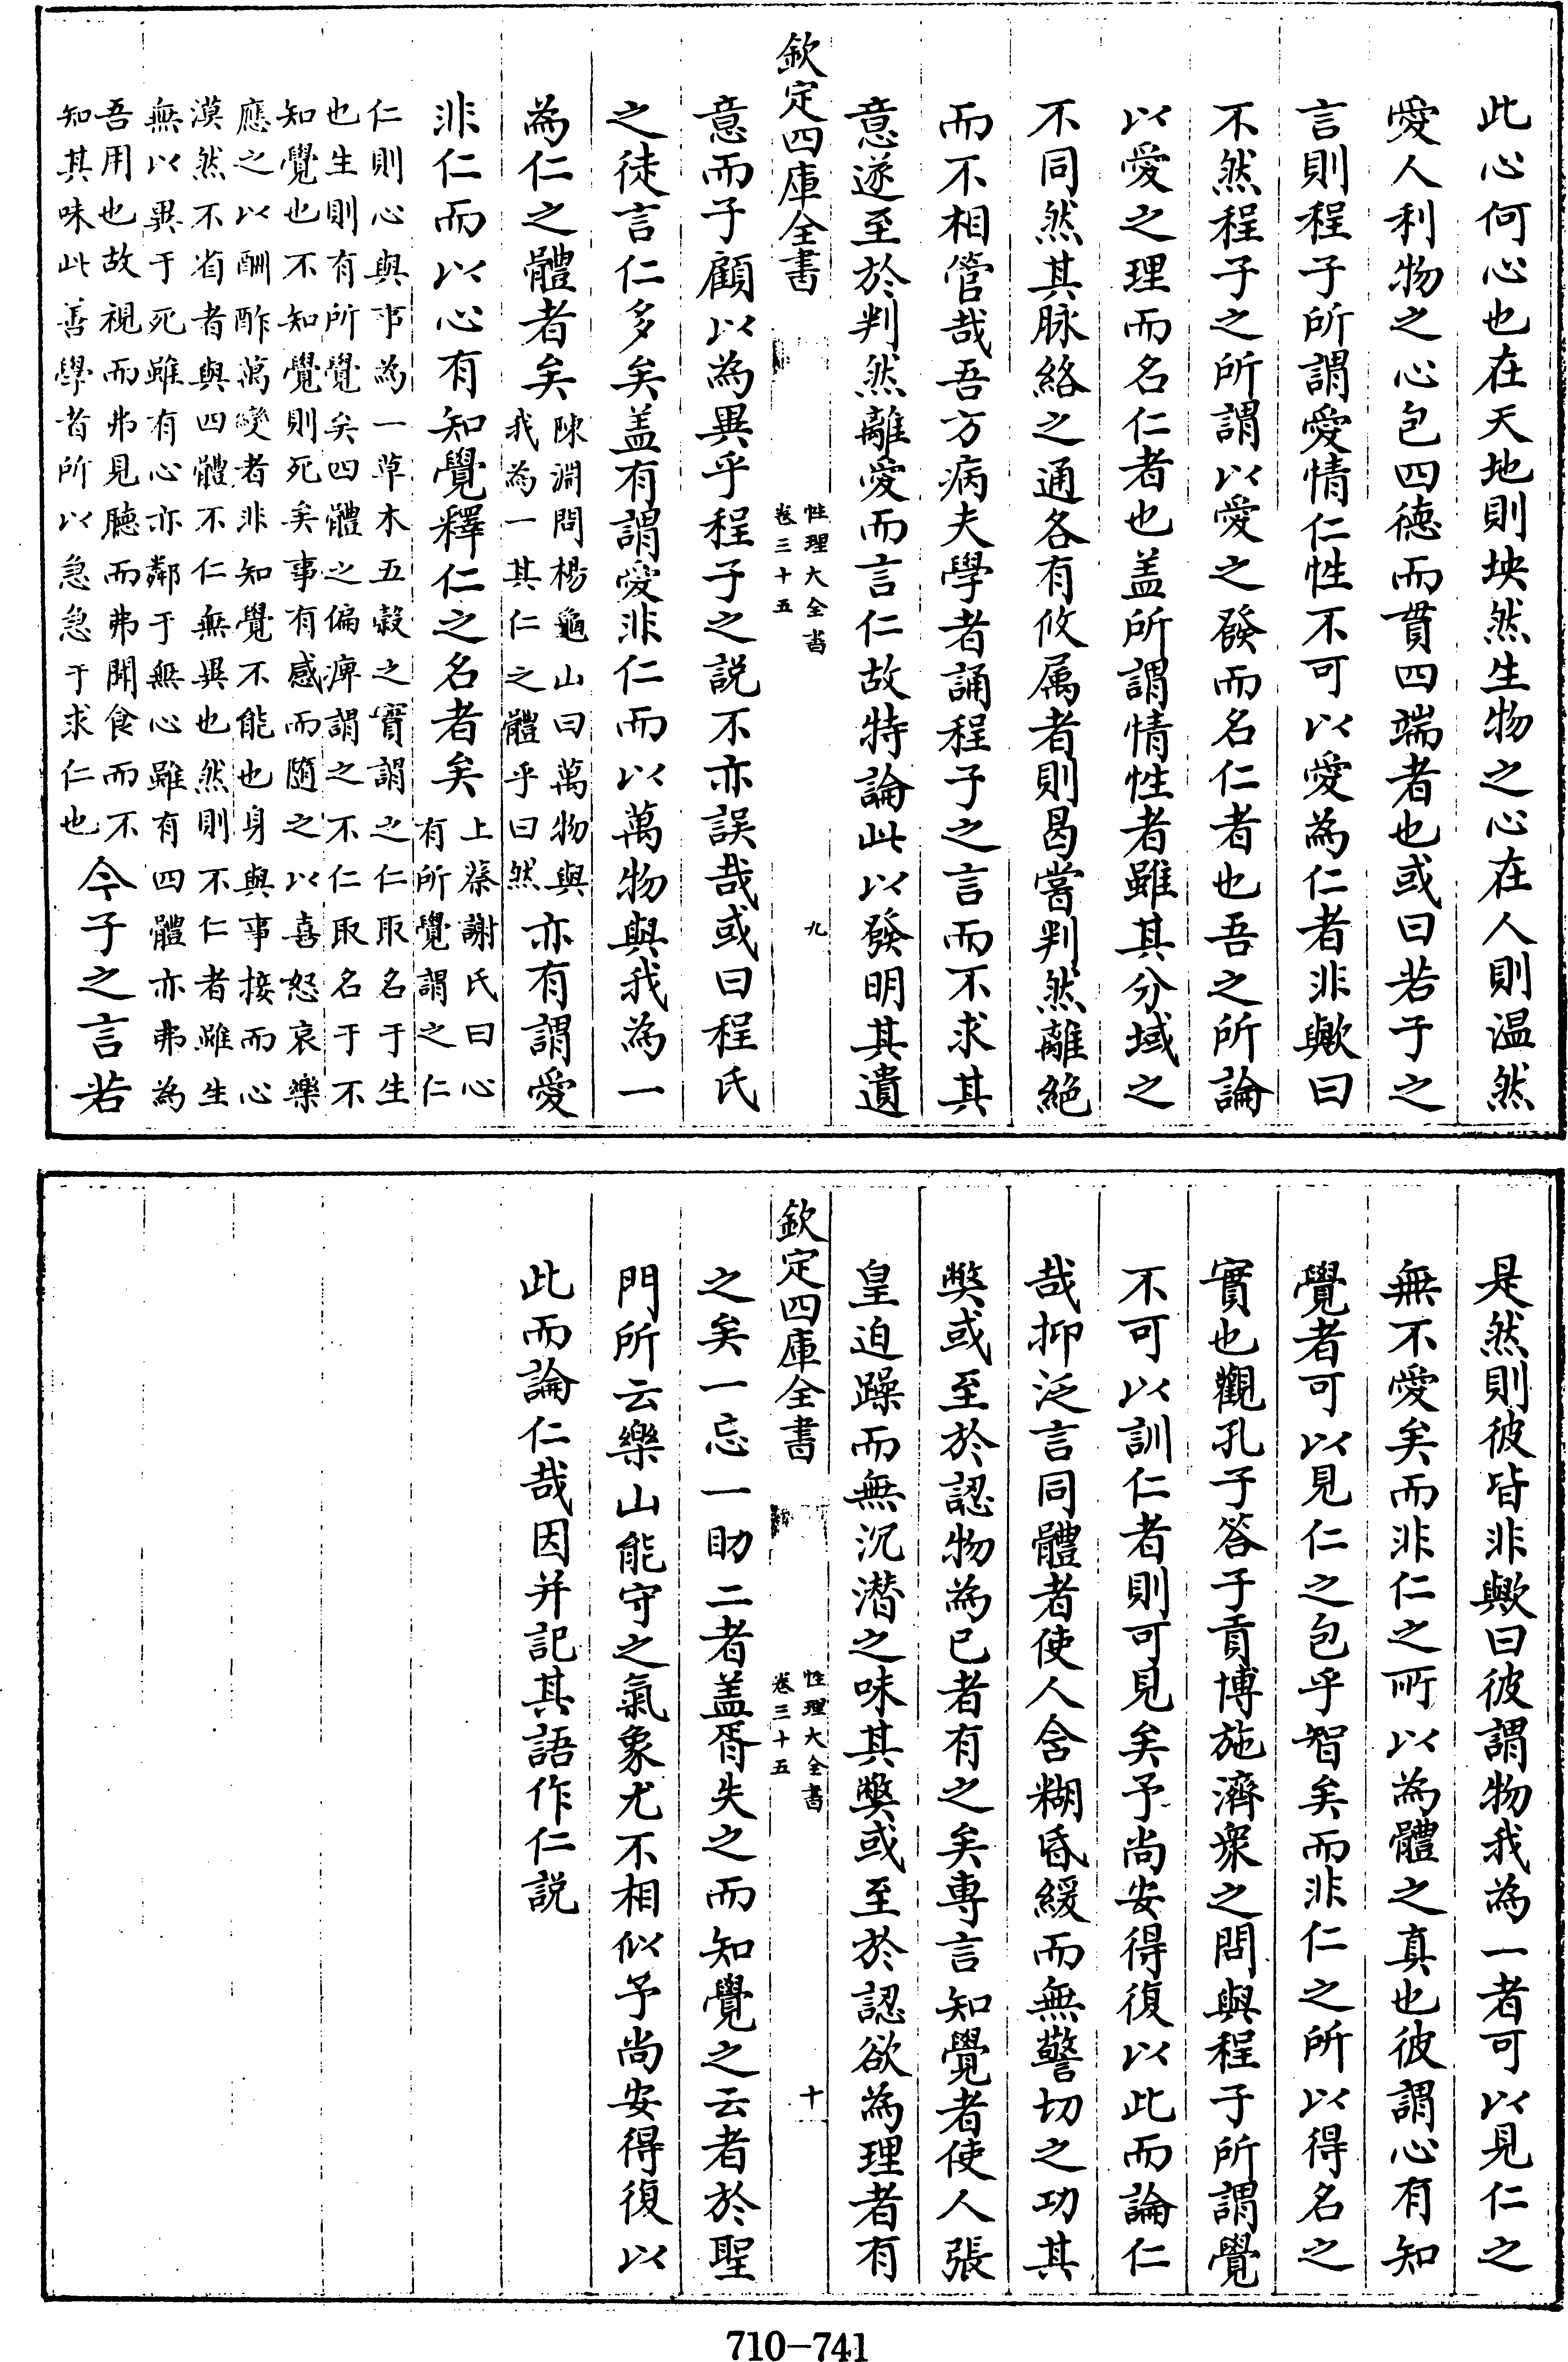 此心何心也在天地則坱然生物之心在人則温然
愛人利物之心包四德而貫四端者也或曰若子之
言則程子所謂愛情仁性不可以愛為仁者非歟曰
不然程子之所謂以愛之發而名仁者也吾之所論
以愛之理而名仁者也盖所謂情性者雖其分域之
不同然其脉絡之通各有攸属者則曷嘗判然離絶
而不相管哉吾方病夫學者誦程子之言而不求其
意遂至於判然離愛而言仁故特論此以發明其遺
欽定四庫全書
性理大全書
卷三十五
九
意而子顧以為異乎程子之說不亦誤哉或曰程氏
之徒言仁多矣盖有謂愛非仁而以萬物與我為一
為仁之體者矣
陳淵問楊龜山曰萬物與
我為一其仁之體乎曰然
亦有謂愛
非仁而以心有知覺釋仁之名者矣
上蔡謝氏曰心
有所覺謂之仁
仁則心與事為一草木五穀之實謂之仁取名于生
也生則有所覺矣四體之偏痺謂之不仁取名于不
知覺也不知覺則死矣事有感而隨之以喜怒哀樂
應之以酬酢萬變者非知覺不能也身與事接而心
漠然不省者與四體不仁無異也然則不仁者雖生
無以異于死雖有心亦鄰于無心雖有四體亦弗為
吾用也故視而弗見聽而弗聞食而不
知其味此善學者所以急急于求仁也
今子之言若
是然則彼皆非歟曰彼謂物我為一者可以見仁之
無不愛矣而非仁之所以為體之真也彼謂心有知
覺者可以見仁之包乎智矣而非仁之所以得名之
實也觀孔子答子貢博施濟衆之問與程子所謂覺
不可以訓仁者則可見矣予尚安得復以此而論仁
哉抑泛言同體者使人含糊昏緩而無警切之功其
獘或至於認物為已者有之矣專言知覺者使人張
皇迫躁而無沉潛之味其獘或至於認欲為理者有
欽定四庫全書
性理大全書
卷三十五
十
之矣一忘一助二者盖胥失之而知覺之云者於聖
門所云樂山能守之氣象尤不相似予尚安得復以
此而論仁哉因并記其語作仁說
710-741